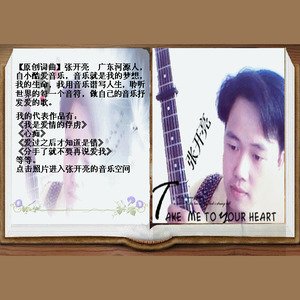 【原创词曲】张开亮 广东河源人，
自小酷爱音乐，音乐就是我的梦想，
我的生命，我用音乐谱写人生，聆听
世界的每一个音符，做自己的音乐抒
发爱的歌。
我的代表作品有：
《我是爱情的俘虏》
《心痴》
《爱过之后才知道是错》
《分手了就不要再说爱我》
等等。
点击照片进入张开亮的音乐空间
张开亮
TAKE ME TO YOUR HEART